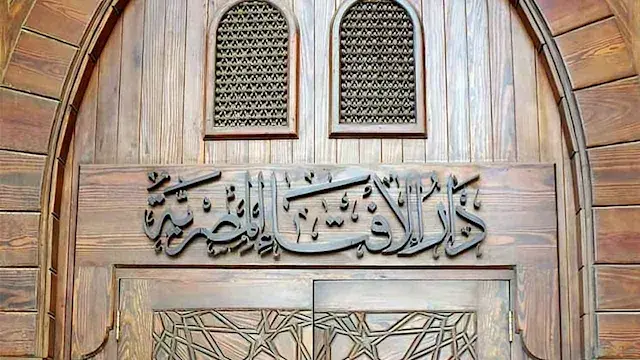 دَارُ الإِفتَاءِ المِصْرِيَّةِ